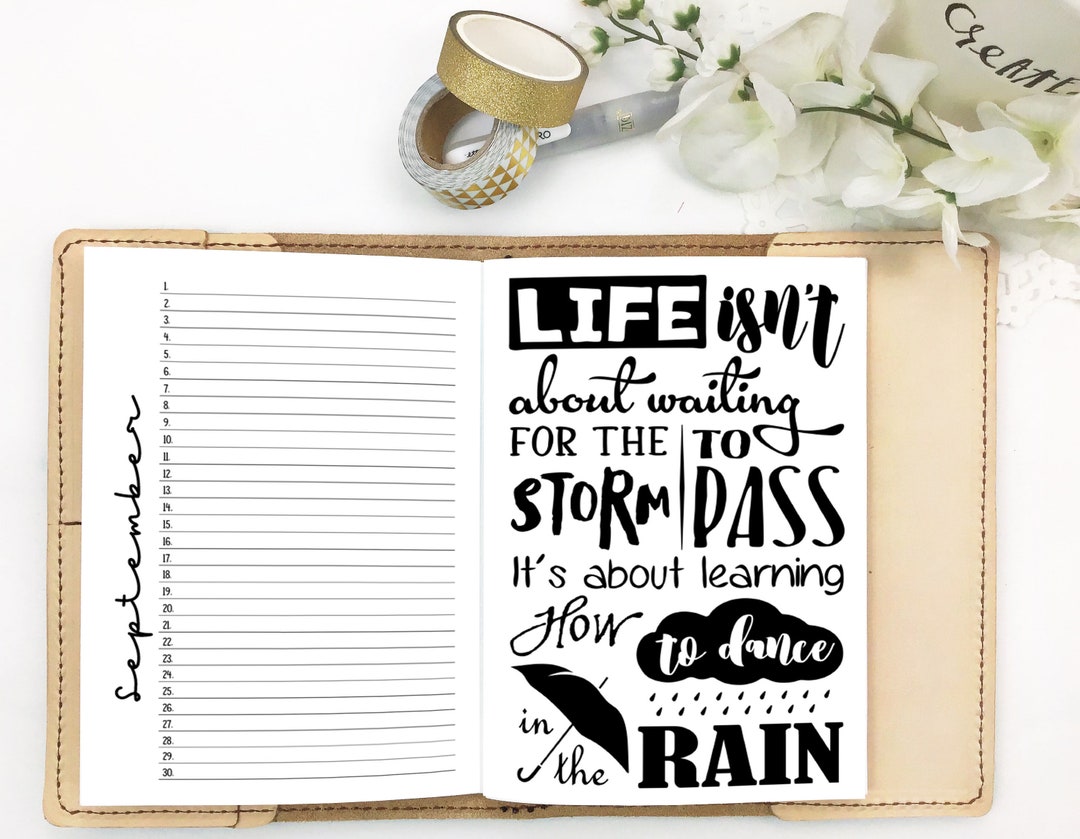 CREATE
September
1.
2.
3.
4.
5.
6.
7.
8.
9.
10.
11.
12.
13.
14.
15.
16.
17.
18.
19.
20.
21.
22.
23.
24.
25.
26.
27.
28.
29.
30.
LIFE isn't
about waiting
FOR THE TO
STORM PASS
It's about learning
How to dance
in the RAIN